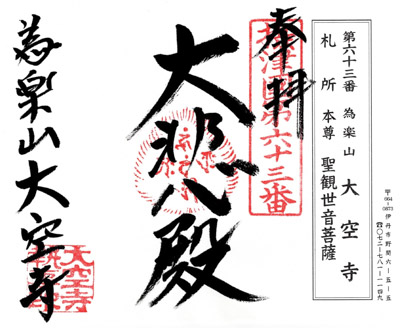 第六十三番 為楽山 大空寺
札所本尊 聖観世音菩薩
〒664-0873 伊丹市野間六-五-五
☎〇七二-七八一-一一四九
奉拝
摂津国第六十三番
大悲殿
為楽山大空寺
大空寺